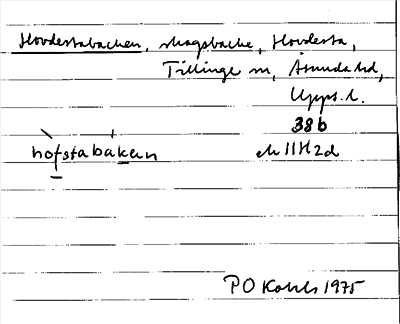 Hovdestabacken, skogsbacke, Hovdesta,
Tillinge sn, Åsunda hd,
Upps. l.
38b
hofstabakan ek 11H2d
P O Kohls 1975